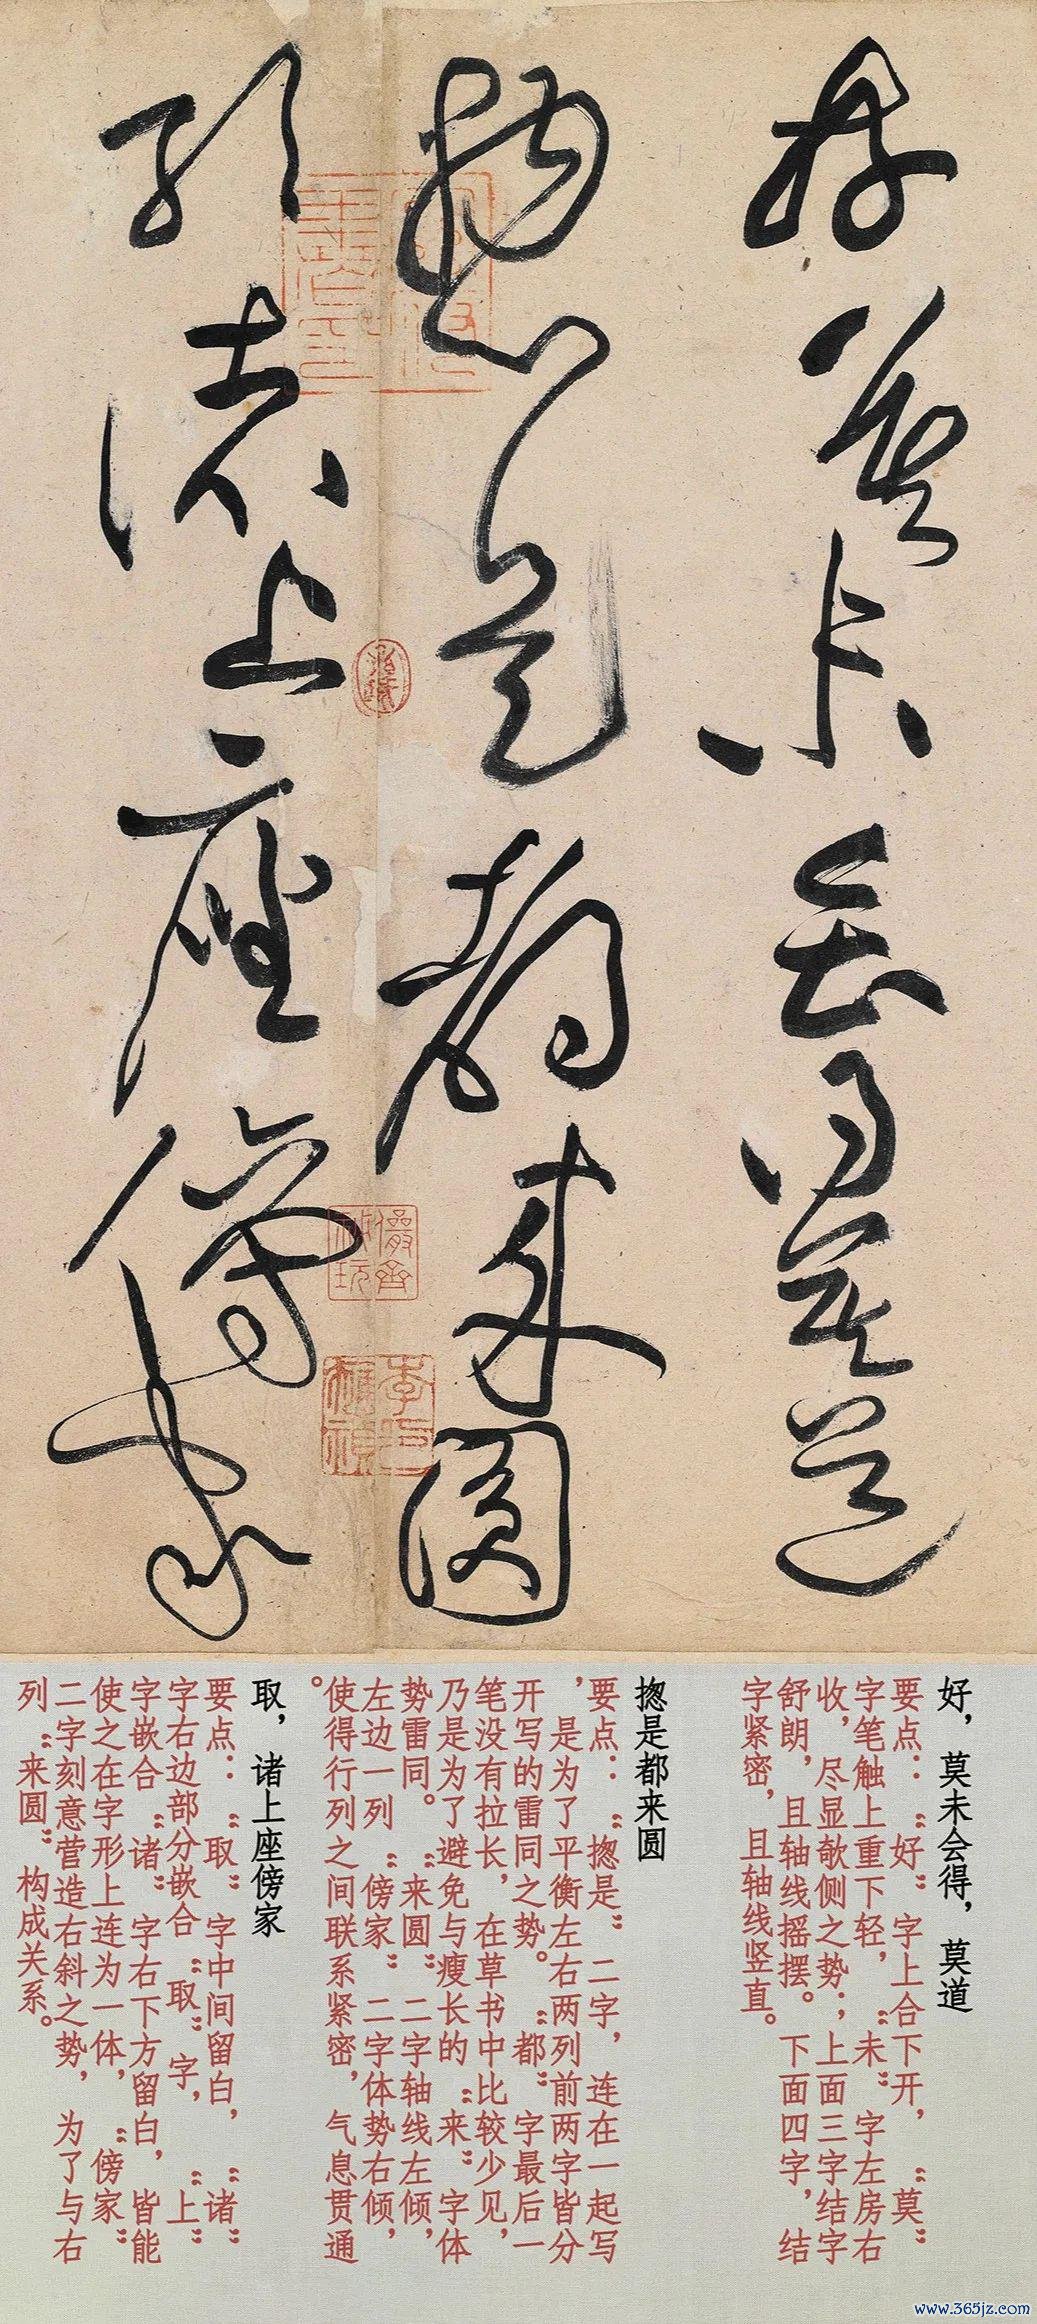 好莫未會得莫道
揔是都來圓
取諸上座傍家
儼齋秘玩
好，莫未会得，莫道
要点：“好”字上合下开，“莫”
字笔触上重下轻，“未”字左房右
收，尽显欹侧之势；上面三字结字
舒朗，且轴线摇摆。下面四字，结
字紧密，且轴线竖直。
揔是都来圆
要点：“揔是”二字，连在一起写
，是为了平衡左右两列前两字皆分
开写的雷同之势。“都”字最后一
笔没有拉长，在草书中比较少见，
乃是为了避免与瘦长的“来”字体
势雷同。“来圆”二字轴线左倾，
左边一列“傍家”二字体势右倾，
使得行列之间联系紧密，气息贯通
。
取，诸上座傍家
要点：“取”字中间留白，“诸”
字右边部分嵌合“取”字，“上”
字嵌合“诸”字右下方留白，皆能
使之在字形上连为一体，“傍家”
二字刻意营造右斜之势，为了与右
列“来圆”构成关系。
www.365jz.com